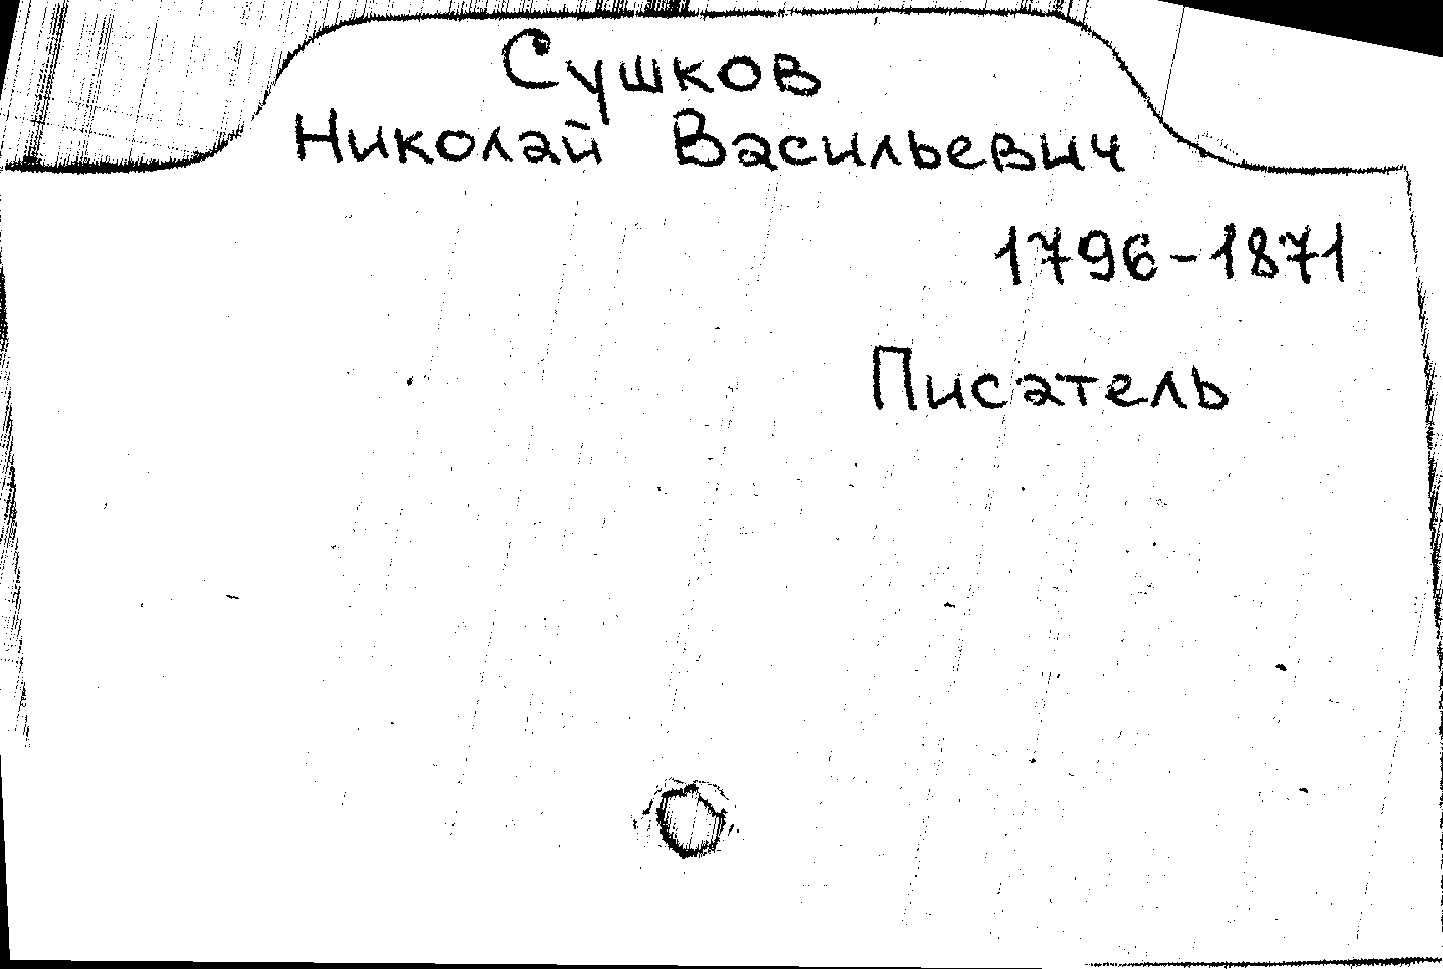 Сушков
Николай Васильевич
1796-1871
Писатель